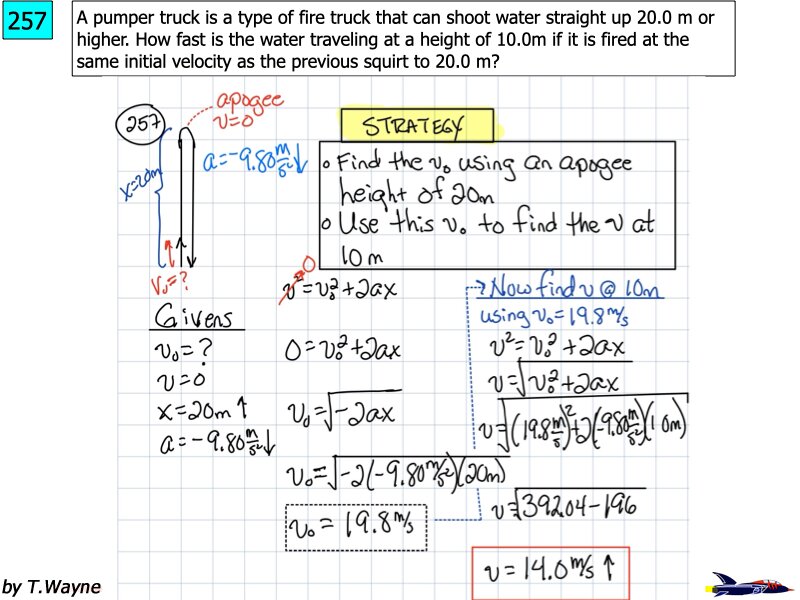 257
A pumper truck is a type of fire truck that can shoot water straight up 20.0 m or
higher. How fast is the water traveling at a height of 10.0m if it is fired at the
same initial velocity as the previous squirt to 20.0 m?
257
apogee
v=0
x=20m
a=-9.80 m/s² ↓
v₀=?
STRATEGY
o Find the v₀ using an apogee
height of 20m
o Use this v₀ to find the v at
10 m
Givens
v₀=?
v=0
x=20m ↑
a=-9.80 m/s² ↓
0
v²=v₀²+2ax
0=v₀²+2ax
v₀=√-2ax
v₀=√-2(-9.80 m/s²)(20m)
v₀=19.8 m/s
→? Now find v @ 10m
using v₀=19.8 m/s
v²=v₀²+2ax
v=√v₀²+2ax
v=√(19.8 m/s)²+2(-9.80 m/s²)(10m)
v=√392.04-196
v=14.0 m/s ↑
by T.Wayne